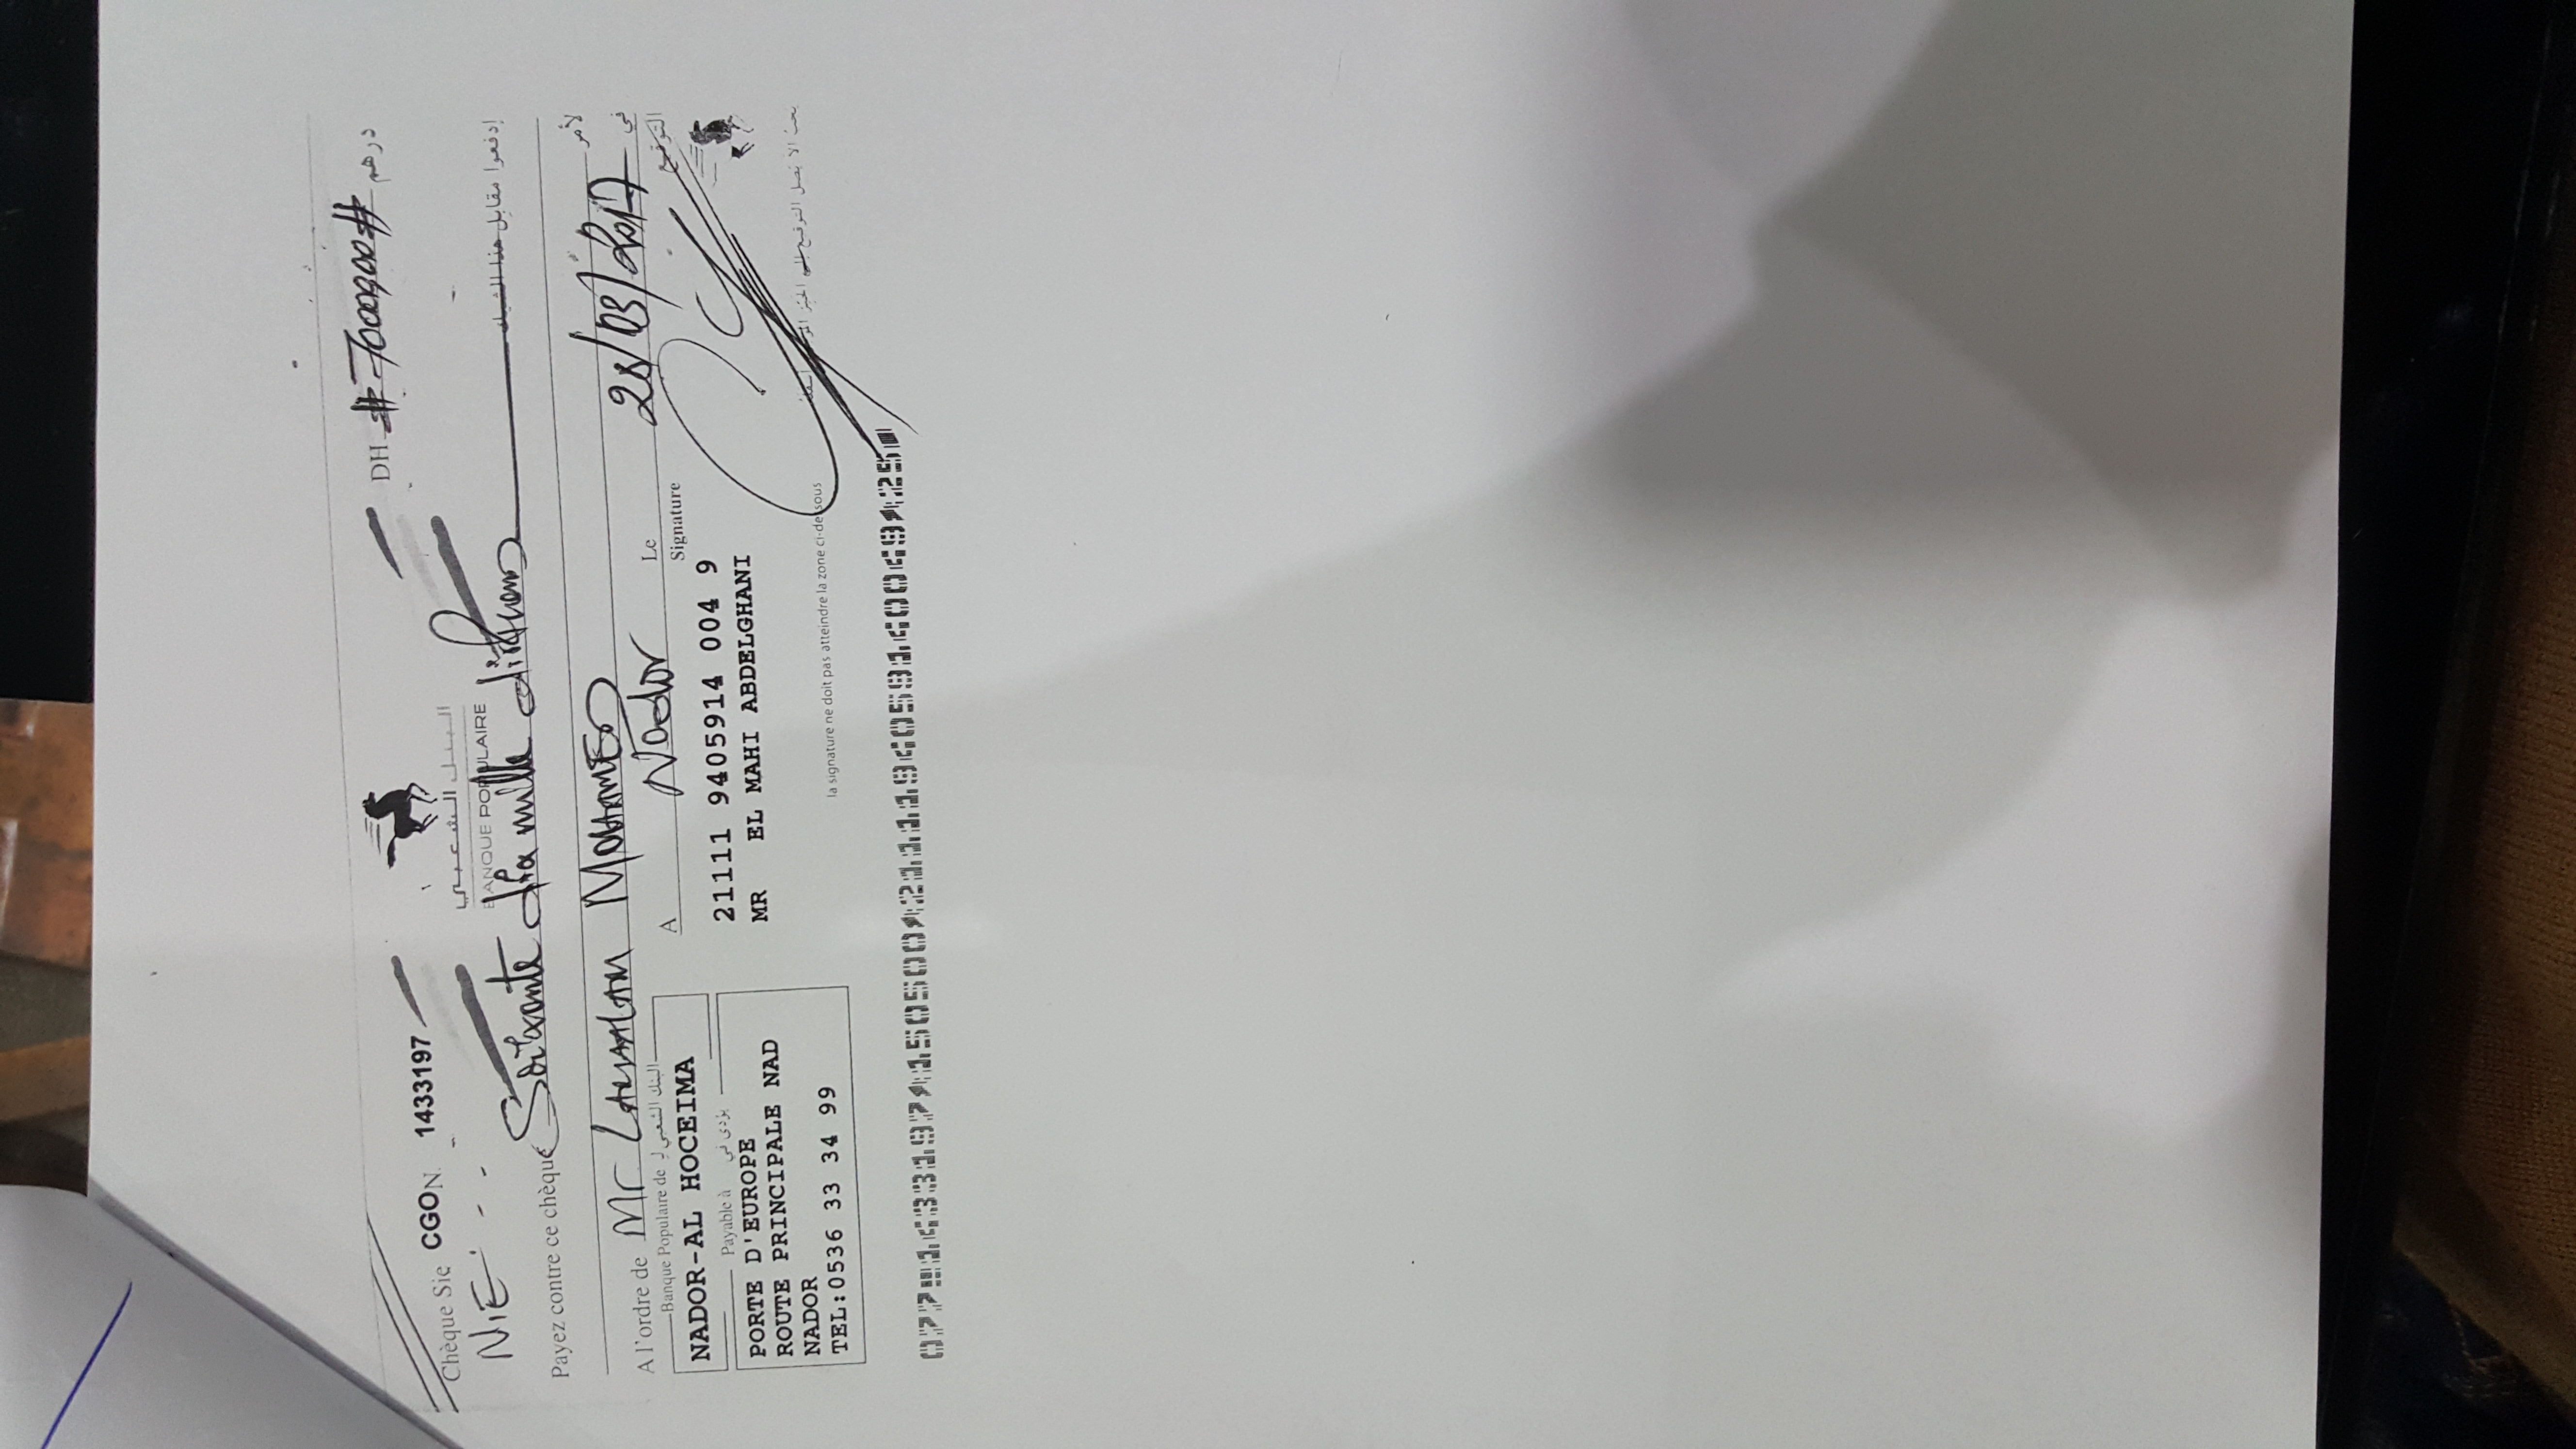 DH # 70000,00 # درهم
Chèque Sie CGO N. 1433197
البنك الشعبي
BANQUE POPULAIRE
NIE
إدفعوا مقابل هذا الشيك
Payez contre ce chèque Soixante dix mille dirhams
لأمر
A l'ordre de Mr LAMAALAM MOHAMED
A Nador Le 28/03/2017 في
Banque Populaire de البنك الشعبي لـ
NADOR-AL HOCEIMA
Signature التوقيع
Payable à يؤدى في
PORTE D'EUROPE
ROUTE PRINCIPALE NAD
NADOR
TEL:0536 33 34 99
21111 9405914 004 9
MR EL MAHI ABDELGHANI
la signature ne doit pas atteindre la zone ci-dessous
يجب ألا يصل التوقيع إلى الحيز أسفله
077 1433197 150500 2111194059140049 25